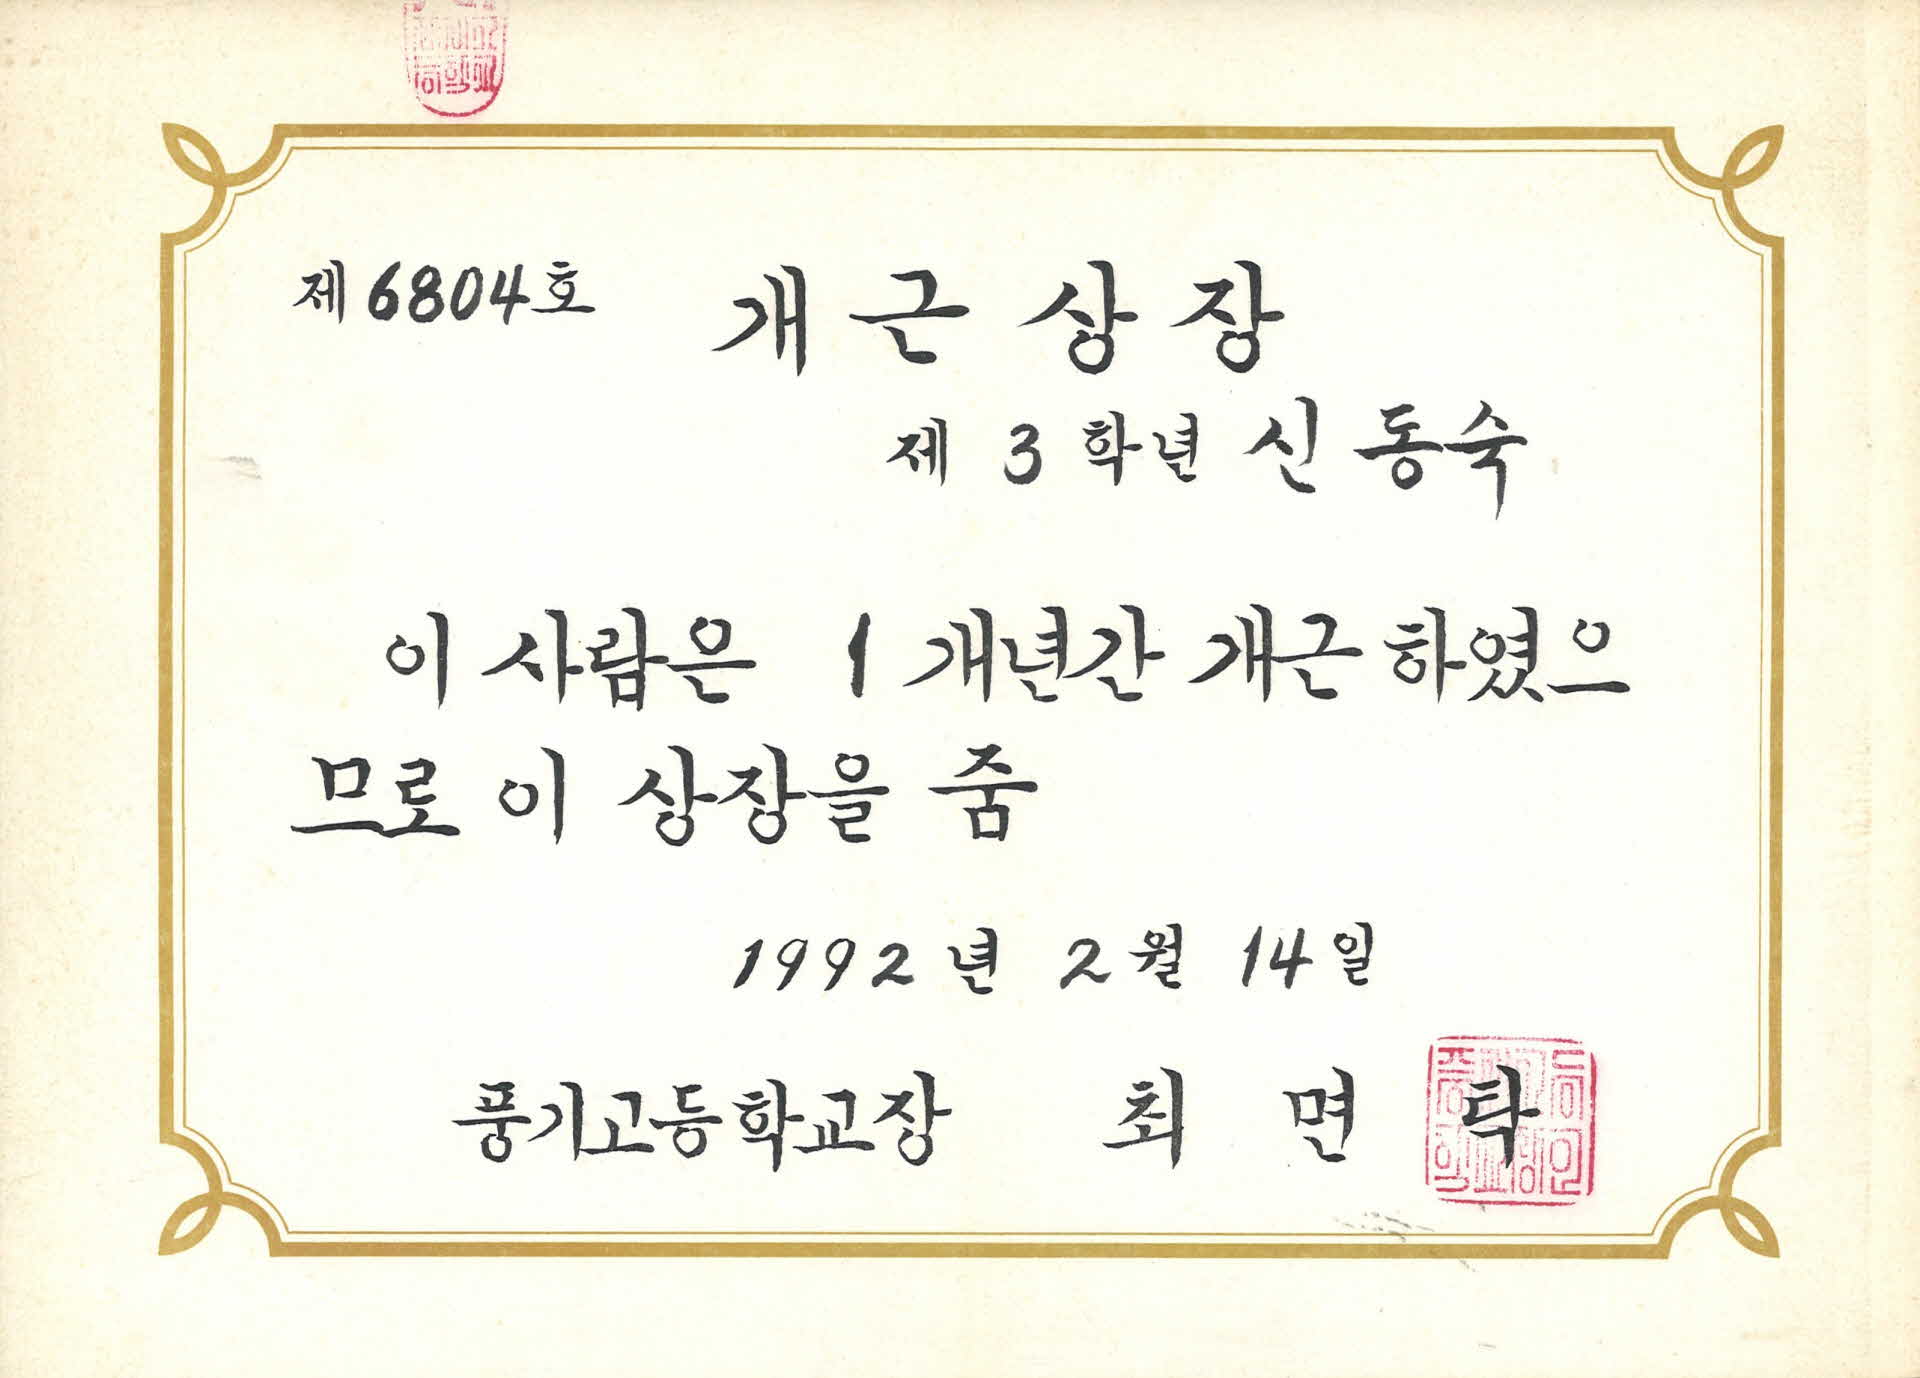 제 6804호 개근상장
제 3 학년 신동숙
이 사람은 1 개년간 개근 하였으
므로 이 상장을 줌
1992 년 2월 14일
풍기고등학교장 최 면 탁